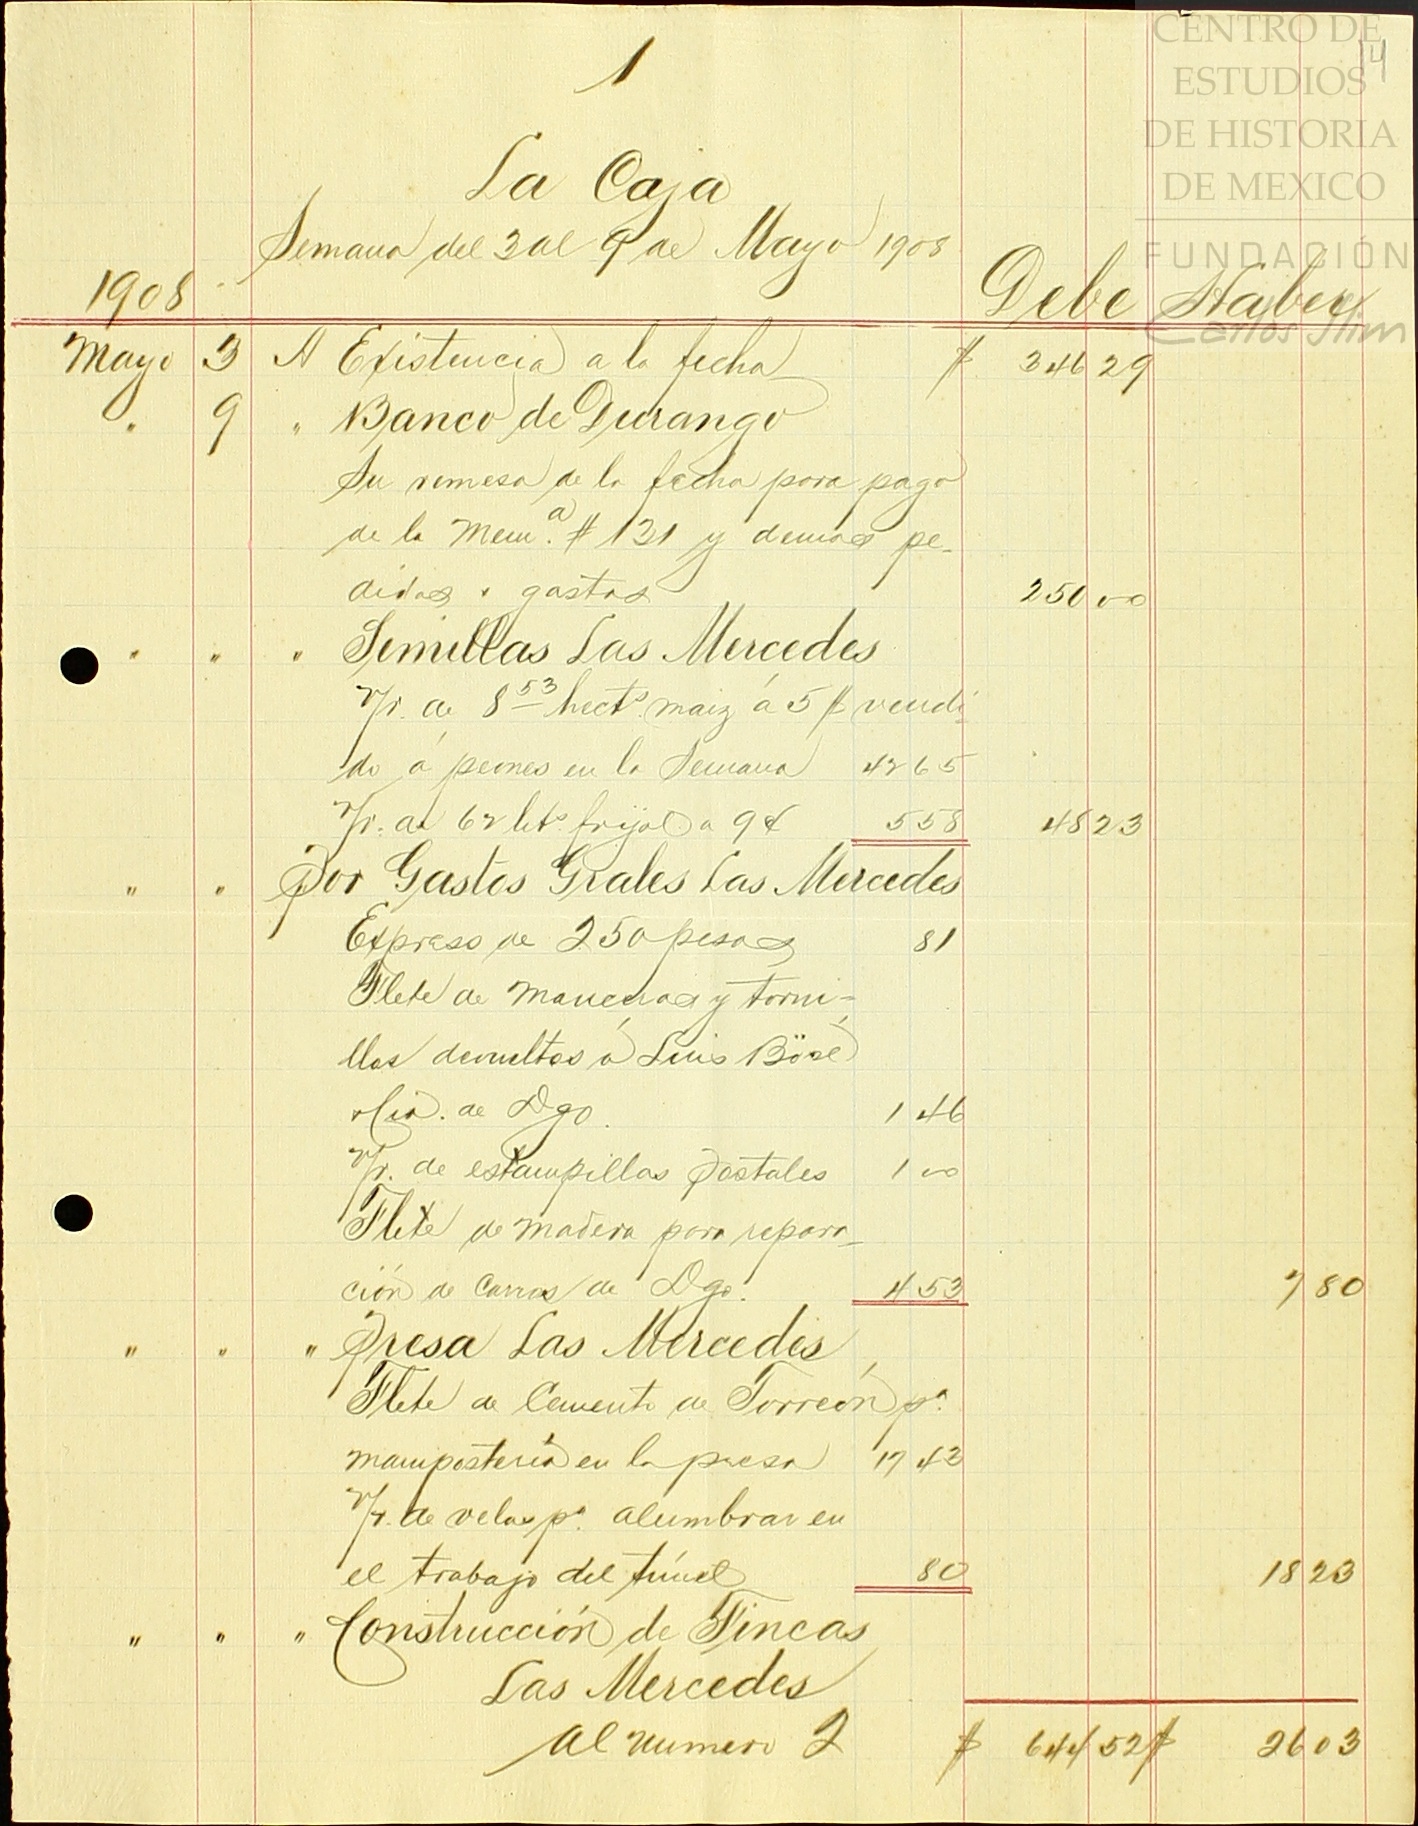 CENTRO DE
ESTUDIOS
DE HISTORIA
DE MEXICO
FUNDACIÓN
Carlos Slim
14
1
La Caja
Semana del 3 al 9 de Mayo 1908
1908 Debe Haber
Mayo 3 A Existencia a la fecha $ 346 29
" 9 " Banco de Durango
Su remesa de la fecha para pago
de la Mem.a # 131 y demas pe-
didos y gastos 250 00
" " " Semillas Las Mercedes
V/r. de 8 53 hects. maiz á 5 $ vendi
do á peones en la Semana 42 65
V/r. de 62 lits. frijol a 9 ¢ 5 58 48 23
" " Por Gastos Grales Las Mercedes
Expreso de 250 pesos 81
Flete de manceras y torni-
llos devueltos á Luis Böse
y Cia. de Dgo. 1 46
V/r. de estampillas Postales 1 00
Flete de madera para repara-
ción de Carros de Dgo. 4 53 7 80
" " " Presa Las Mercedes
Flete de Cemento de Torreón pa.
mampostería en la presa 17 43
V/r. de velas pa. alumbrar en
el trabajo del túnel 80 18 23
" " " Construcción de Fincas
Las Mercedes
Al numero 2 $ 644 52 $ 26 03